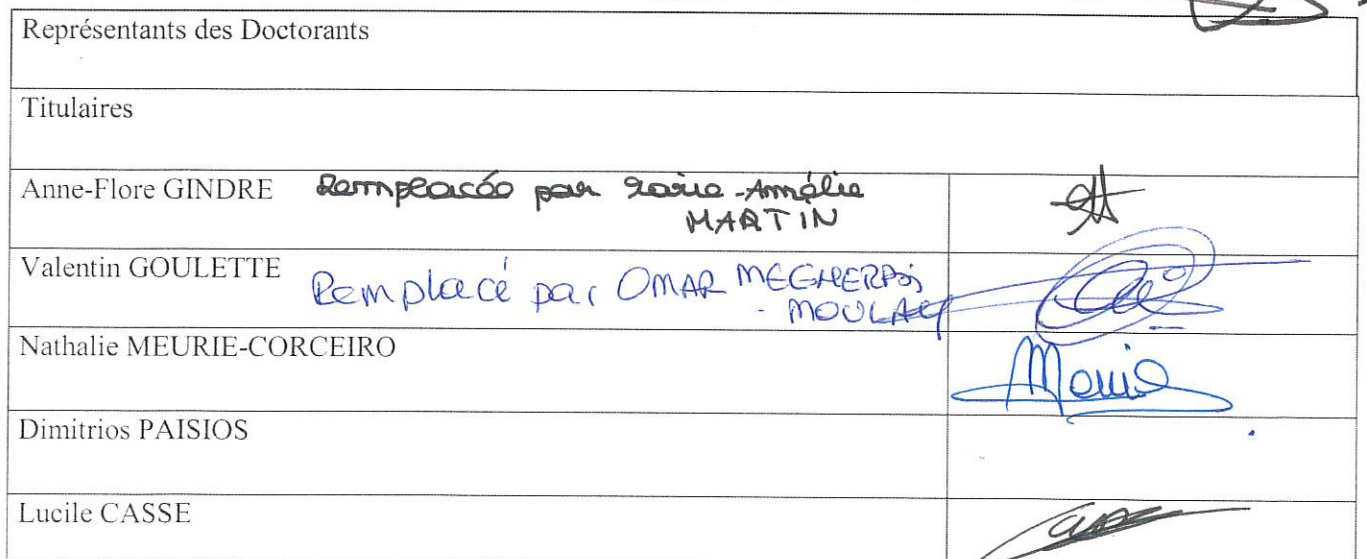 Représentants des Doctorants
Titulaires
Anne-Flore GINDRE Remplacée par Marie-Amélie
MARTIN
Valentin GOULETTE Remplacé par OMAR MEGHERBI
- MOULAY
Nathalie MEURIE-CORCEIRO
Dimitrios PAISIOS
Lucile CASSE